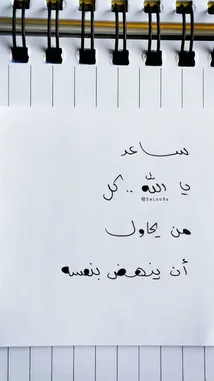 ساعد
يا الله .. كل
@Saloo9x
من يحاول
أن ينهض بنفسه